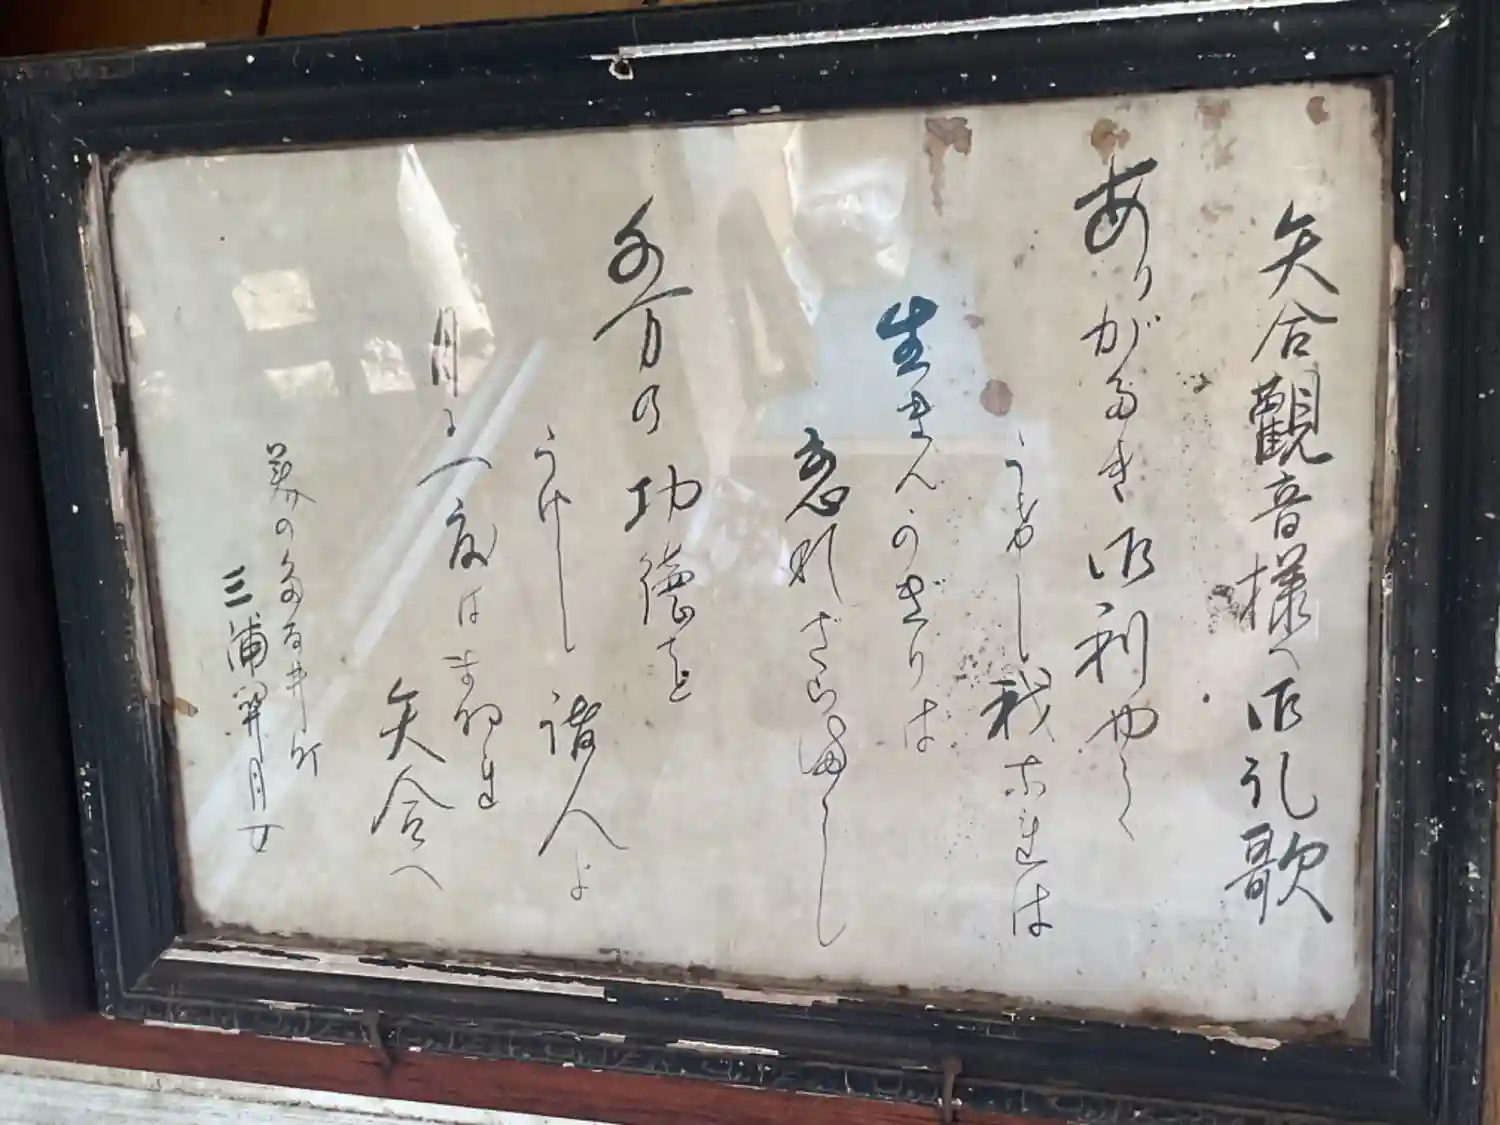 矢合觀音様へ御礼歌
ありがたき御利やく
うけし我等は
生まんかぎりは
忘れざらまし
多方の功徳を
うけし諸人よ
月に一度はまいれ
矢合へ
美の
三浦 月女